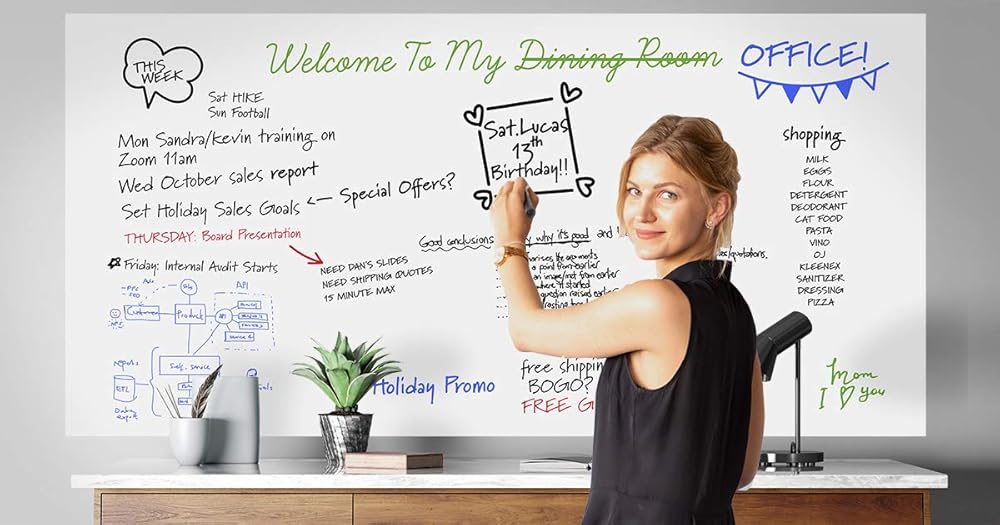 THIS
WEEK
Welcome To My Dining Room OFFICE!
Sat HIKE
Sun Football
Mon Sandra/Kevin training on
Zoom 11am
Wed October sales report
Set Holiday Sales Goals
Special Offers?
THURSDAY: Board Presentation
Friday: Internal Audit Starts
NEED DAN'S SLIDES
NEED SHIPPING QUOTES
15 MINUTE MAX
Sat. Lucas
13th
Birthday!!
Good conclusions
why it's good and
the arguments
a point from earlier
an image/mot from earlier
where it started
question raised
/quotations.
API
Product
Customer
API
reports
ETL
Holiday Promo
free shippin
BOGO?
FREE G
shopping
MILK
EGGS
FLOUR
DETERGENT
DEODORANT
CAT FOOD
PASTA
VINO
OJ
KLEENEX
SANITIZER
DRESSING
PIZZA
Mom
I you